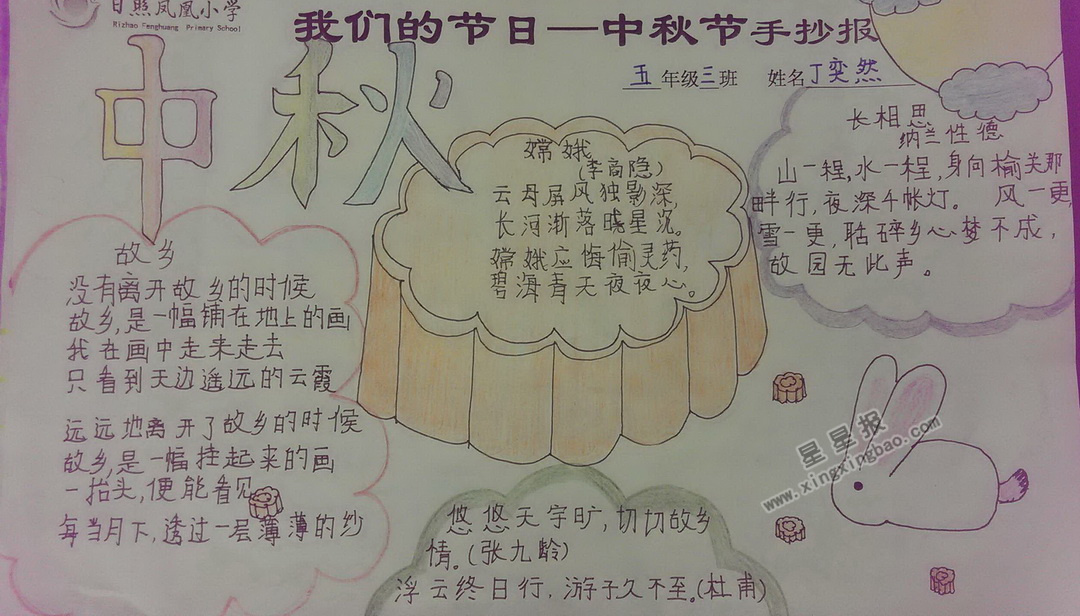 日照凤凰小学
Rizhao Fenghuang Primary School
我们的节日—中秋节手抄报
五年级三班 姓名丁奕然
中秋
故乡
没有离开故乡的时候
故乡,是一幅铺在地上的画
我在画中走来走去
只看到天边遥远的云霞
远远地离开了故乡的时候
故乡,是一幅挂起来的画
一抬头,便能看见
每当月下,透过一层薄薄的纱
嫦娥
(李商隐)
云母屏风独影深,
长河渐落晓星沉。
嫦娥应悔偷灵药,
碧海青天夜夜心。
长相思
纳兰性德
山一程,水一程,身向榆关那
畔行,夜深千帐灯。 风一更,
雪一更,聒碎乡心梦不成,
故园无此声。
悠悠天宇旷,切切故乡
情。(张九龄)
浮云终日行,游子久不至。(杜甫)
星星报
www.xingxingbao.com